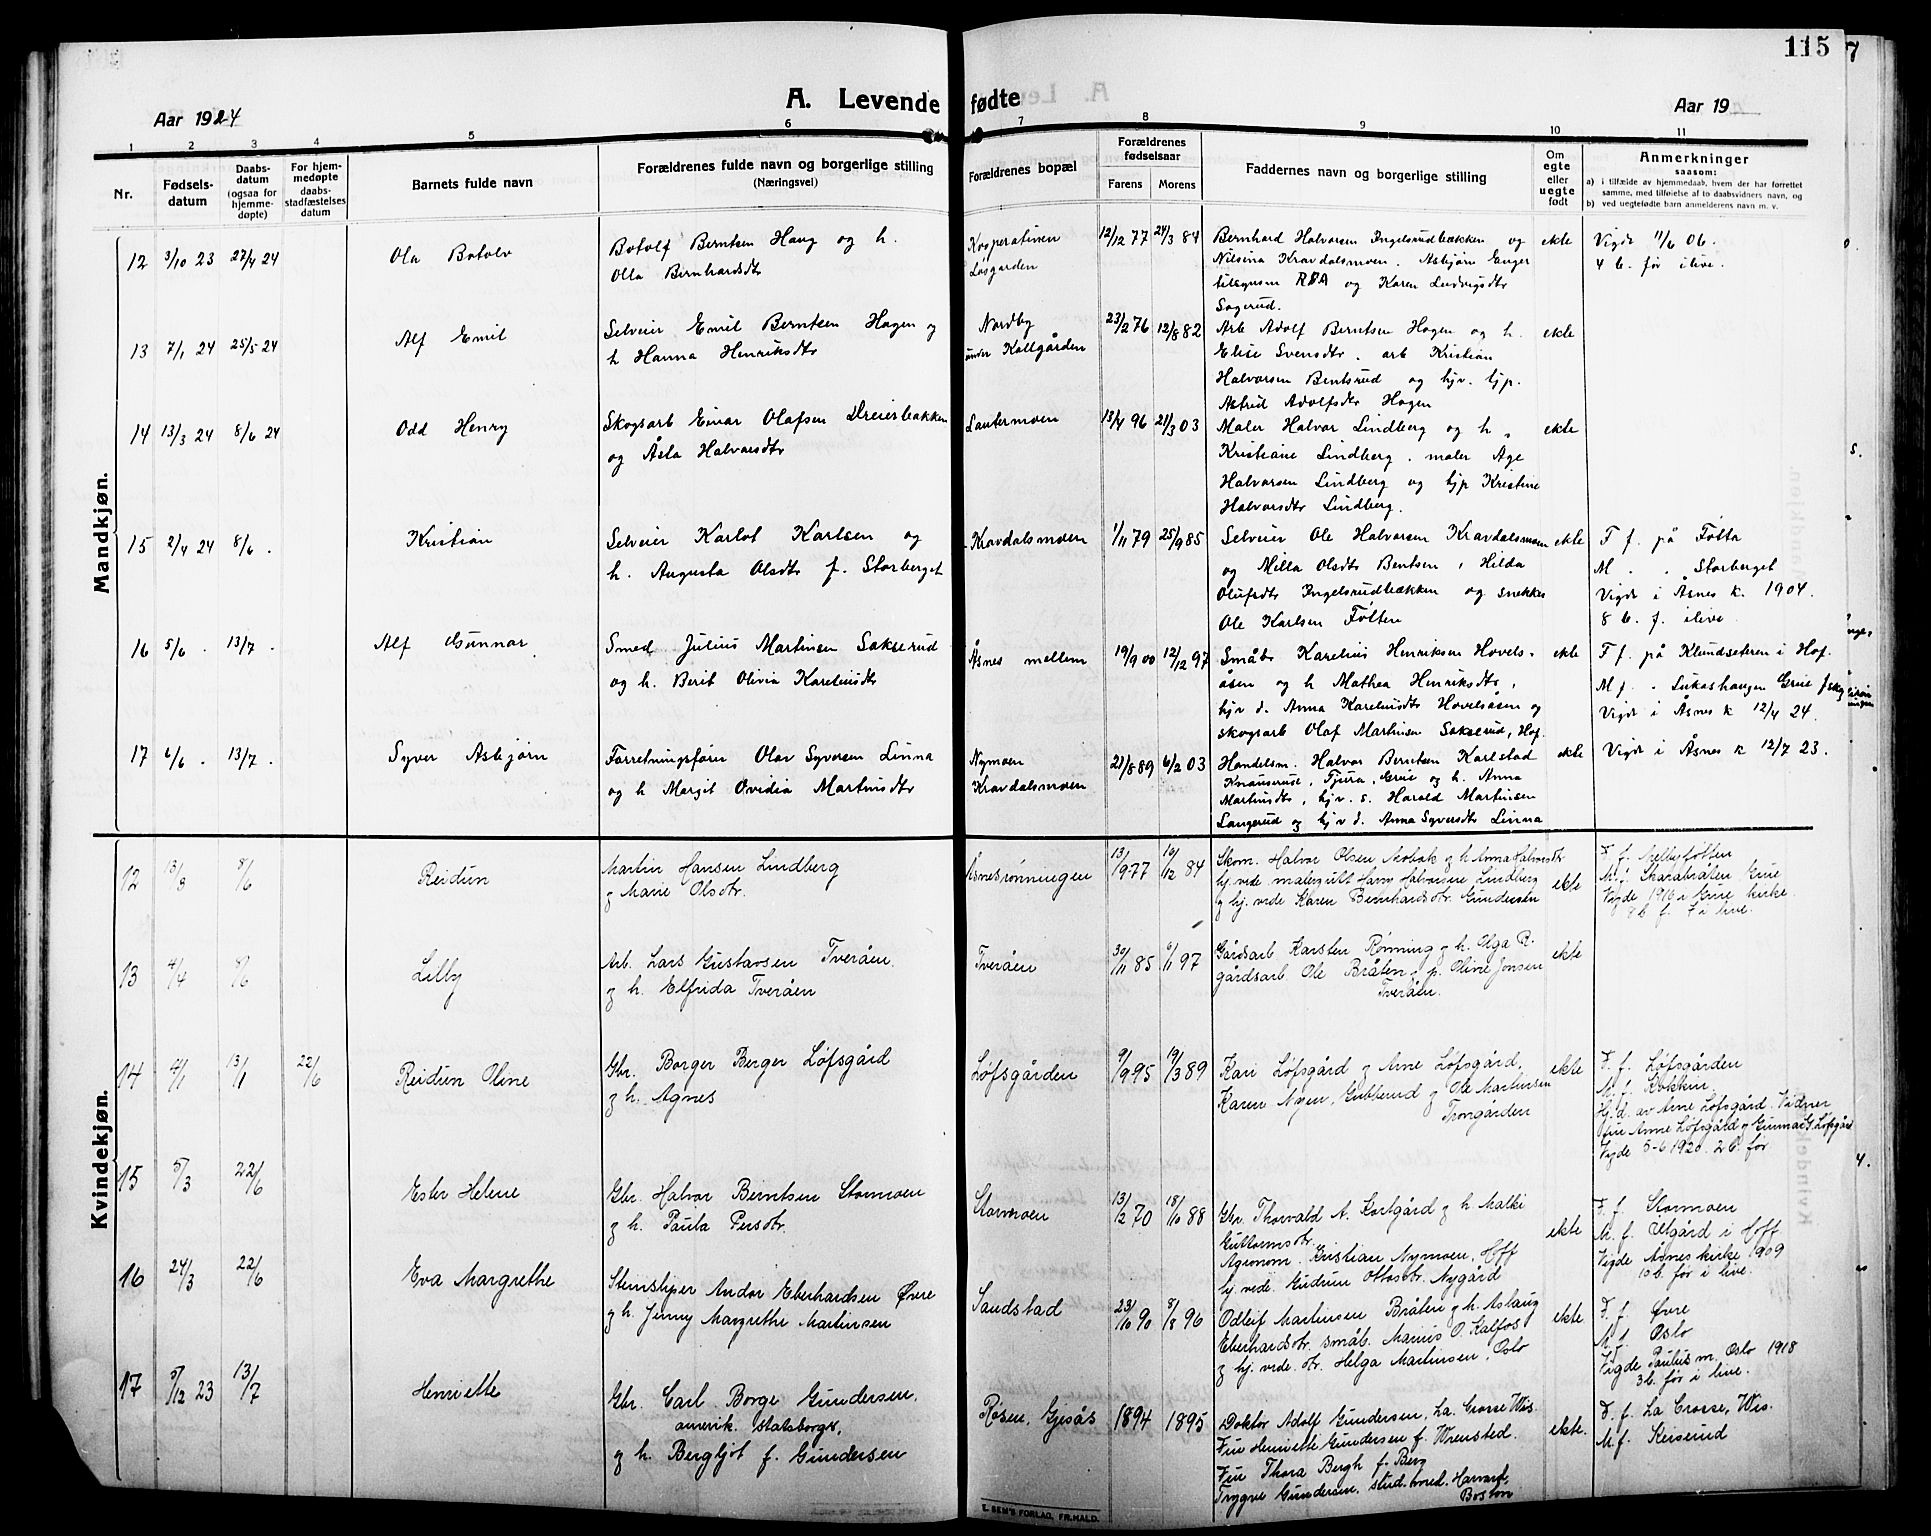 115
7
A. Levende fødte
Aar 1924
Aar 19
1 2 3 4 5 6 7 8 9 10 11
Nr.
Fødsels-
datum
Daabs-
datum
(ogsaa for
hjemme-
døpte)
For hjem-
medøpte
daabs-
stadfæstelses
datum
Barnets fulde navn
Forældrenes fulde navn og borgerlige stilling
(Næringsvei)
Forældrenes bopæl
Forældrenes
fødselsaar
Farens Morens
Faddernes navn og borgerlige stilling
Om
egte
eller
uegte
født
Anmerkninger
saasom:
a) i tilfælde av hjemmedaab, hvem der har forrettet
samme, med tilføielse af to daabsvidners navn, og
b) ved uegtefødte barn anmelderens navn m. v.
Mandkjøn.
12 3/10 23 27/4 24 Ola Botolv
Botolf Berntsen Haug og h.
Olla Bernhardsdtr
Løsgarden
12/12 77 24/3 84
Bernhard Halvorsen Ingelsrudbækken og
Nilsina Kravdalsmoen. Asbjørn Enger
og Karen Ludvigsdtr
Sagerud.
ekte
Vigde 11/6 06.
4 b. før i live.
13 7/1 24 25/5 24 Alf Emil
Selveier Emil Berntsen Hagen og
h Hanna Henriksdtr
Nordby
under Kollgården
23/2 76 12/8 82
Arb Adolf Berntsen Hagen og h.
Elise Svensdtr. arb Kristian
Halvorsen Bentsrud og hjv. hjp.
Astrid Adolfsdtr Hagen
ekte
14 13/3 24 8/6 24 Odd Henry
Skogsarb Einar Olafsen Dreierbakken
og Åsla Halvorsdtr
Lautermoen
13/4 96 21/3 03
Maler Halvor Lindberg og h.
Kristiane Lindberg. maler Åge
Halvorsen Lindberg og hjp Kristine
Halvorsdtr Lindberg.
ekte
15 2/4 24 8/6 . Kristian
Selveier Karlot Karlsen og
h. Augusta Olsdtr f. Storberget
Kravdalsmoen
1/11 79 25/9 85
Selveier Ole Halvorsen Kravdalsmoen
og Milla Olsdtr Bentsen, Hilda
Olufsdtr Ingelsrudbækken og snekker
Ole Karlsen Følten
ekte
F f. på Føltn
M . . Storberget
Vigde i Åsnes k. 1904.
8 b. f. i live.
16 5/6 . 13/7 . Alf Gunnar
Smed Julius Martinsen Sakserud
og h. Berit Olivia Kareliusdtr
Åsnes mellem
19/9 00 12/12 97
Småbr Karelius Henriksen Hovels-
åsen og h Mathea Henriksdtr,
hjv d. Anna Kareliusdtr Hovelsåsen og
skogsarb Olaf Martinsen Sakserud, Hof.
ekte
F f. på Klundseteren i Hof.
M f. . Lukashaugen Grue f.skog
Vigde i Åsnes k 12/4 24.
17 6/6 . 13/7 . Syver Asbjørn
Forretningsfører Olav Syversen Linna
og h Margit Ovidia Martinsdtr
Nymoen
Kravdalsmoen
21/8 89 6/2 03
Handelsm. Halvor Berntsen Karlstad
Knauserud, Tjura, Grue og h. Anna
Martinsdtr, hjv. s. Harald Martinsen
Langerud og hjv d. Anna Syversdtr Linna
ekte
Vigde i Åsnes k 12/7 23.
Kvindekjøn.
12 13/3 8/6 Reidun
Martin Hansen Lindberg
og Marie Olsdtr.
Åsnesrønningen
13/9 77 10/12 84
Skom. Halvor Olsen Mobæk og h Anna Halvorsdtr
hj. vede malergutt Harry Halvorsen Lindberg
og hj. vede Karen Bernhardsdtr. Gundersen
ekte
F. f. Melbyfølten
M. f. Skarabråten Grue
Vigde 1910 i Grue kirke.
8 b. f. 7 i live.
13 4/4 8/6 Lilly
Arb. Lars Gustavsen Tveråen.
og h. Elfrida Tveråen
Tveråen
30/11 85 6/11 97
Gårdsarb Karsten Rønning og h. Olga R.
gårdsarb Ole Bråten, p. Oline Jonsen
Tveråen.
ekte
14 4/1 13/1 22/6 Reidun Oline
Gbr. Borger Berger Løfsgård
og h. Agnes
Løfsgården
9/9 95 19/3 89
Kari Løfsgård og Arne Løfsgård,
Karen Nyen, Gubberud og Ole Martinsen
Trongården
ekte
F. f. Løfsgården
M. f. Kokkin.
Hj.d. av Arne Løfsgård. Vidner
fru Anne Løfsgård og Gunnar G. Løfsgård
Vigde 5-6 1920. 2 b. før
15 5/3 22/6 Ester Helene
Gbr. Halvor Berntsen Stormoen
og h. Paula Persdtr.
Stormoen
13/2 70 18/10 88
Gbr. Thorvald A. Kortgård og h. Malki
Guttormsdtr.
Agronom. Kristian Nymoen, Hoff
hj. vede. Gudrun Ottosdtr. Nygård
ekte
F. f. Stormoen
M. f. Ulgård i Hoff
Vigde Åsnes kirke 1909
10 b. før i live.
16 24/3 22/6 Eva Margrethe
Stensliper Andor Eberhardsen Øvre
og h. Jenny Margrethe Martinsen
Sandstad
23/10 90 8/8 96
Odleif Martinsen Bråten og h. Aslaug
Eberhardsdtr. småb. Marius O. Kalfos
og hj. vede. dtr. Helga Martinsen, Oslo
ekte.
F. f. Øvre
M. f. Oslo
Vigde Paulus m. Oslo 1918
3 b. før i live.
17 5/12 23 13/7 Henriette
Gbr. Carl Borge Gundersen.
amerik. statsborger,
og h. Bergljot f. Gundersen
Røsen, Gjesås
1894 1895
Doktor Adolf Gundersen, La Crosse Wis.
Fru Henriette Gundersen f. Wrensted.
Fru Thora Bergh f. Berg
Trygve Gundersen. stud. med. Harvard,
Boston
ekte.
F. f. La Crosse, Wis.
M. f. Keiserud
E. SEM'S FORLAG, FR.HALD.